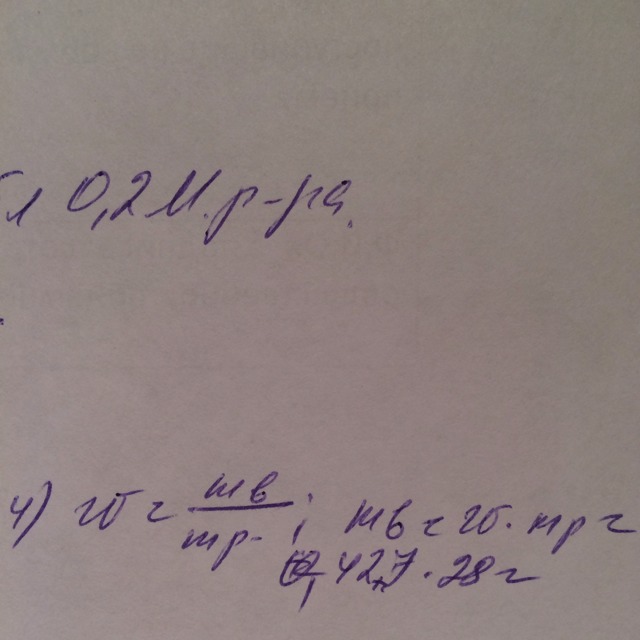 л 0,2 М. р-ра.
4) w = mв
mр-
; mв = w. mр =
0,427 · 28 =